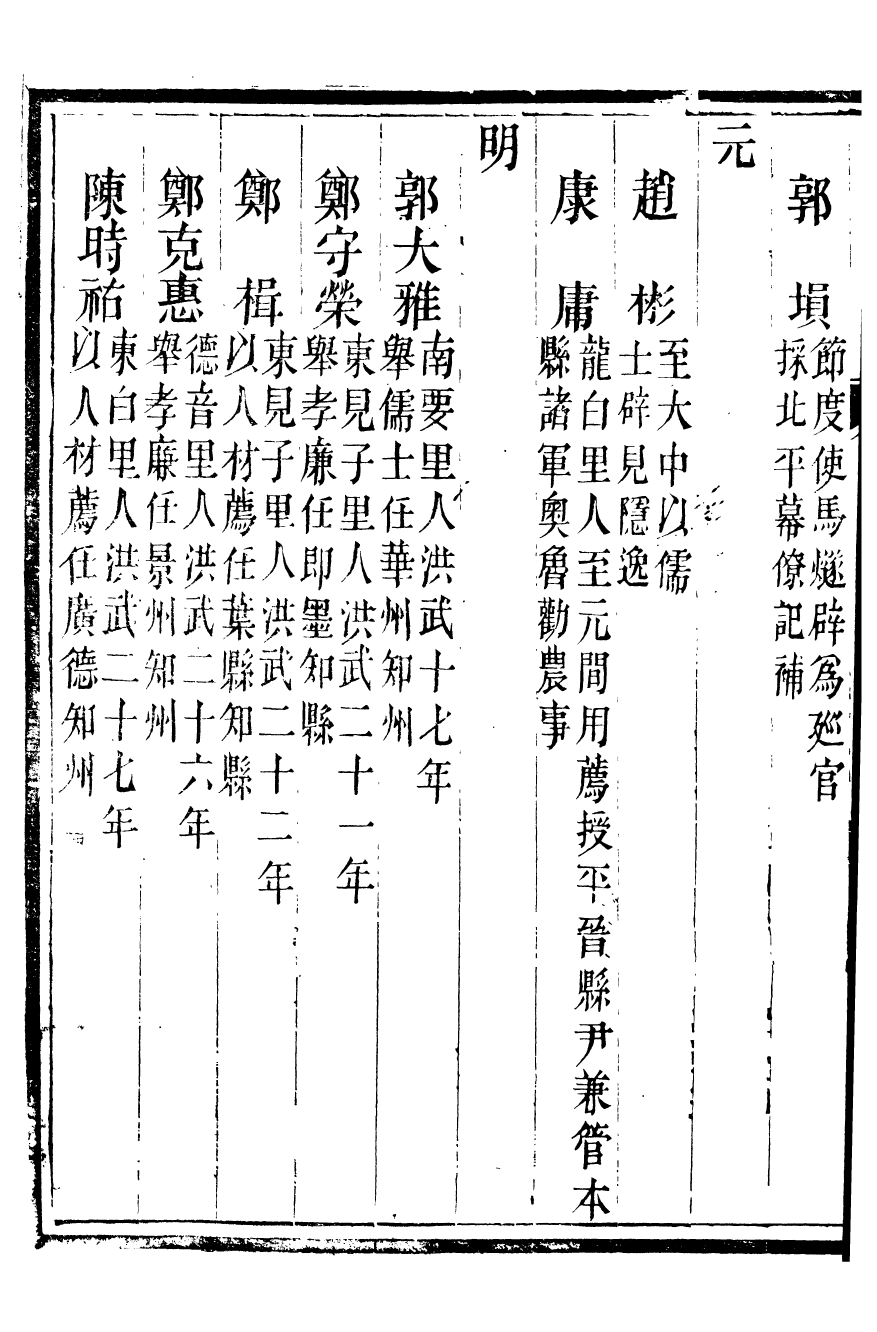 郭塤節度使馬燧辟爲廵官
採北平幕僚記補
元
趙彬至大中以儒
士辟見隱逸
康庸龍白里人至元間用薦授平晉縣尹兼管本
縣諸軍奧魯勸農事
明
郭大雅南要里人洪武十七年
舉儒士任華州知州
鄭守榮東見子里人洪武二十一年
舉孝廉任即墨知縣
鄭楫東見子里人洪武二十二年
以人材薦任葉縣知縣
鄭克惠德音里人洪武二十六年
舉孝廉任景州知州
陳時祐東白里人洪武二十七年
以人材薦任廣德知州